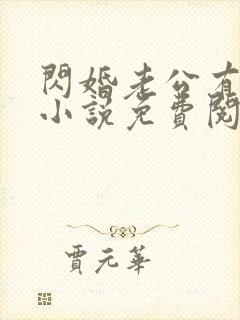 閃婚老公有
小說免費閱
賈元華